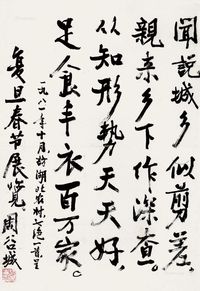 闻说城乡似剪差
亲来乡下作深查。
从知形势天天好，
足食丰衣百万家。
一九八二年十月於湖北农村七绝一首呈
复旦春节展览
周谷城